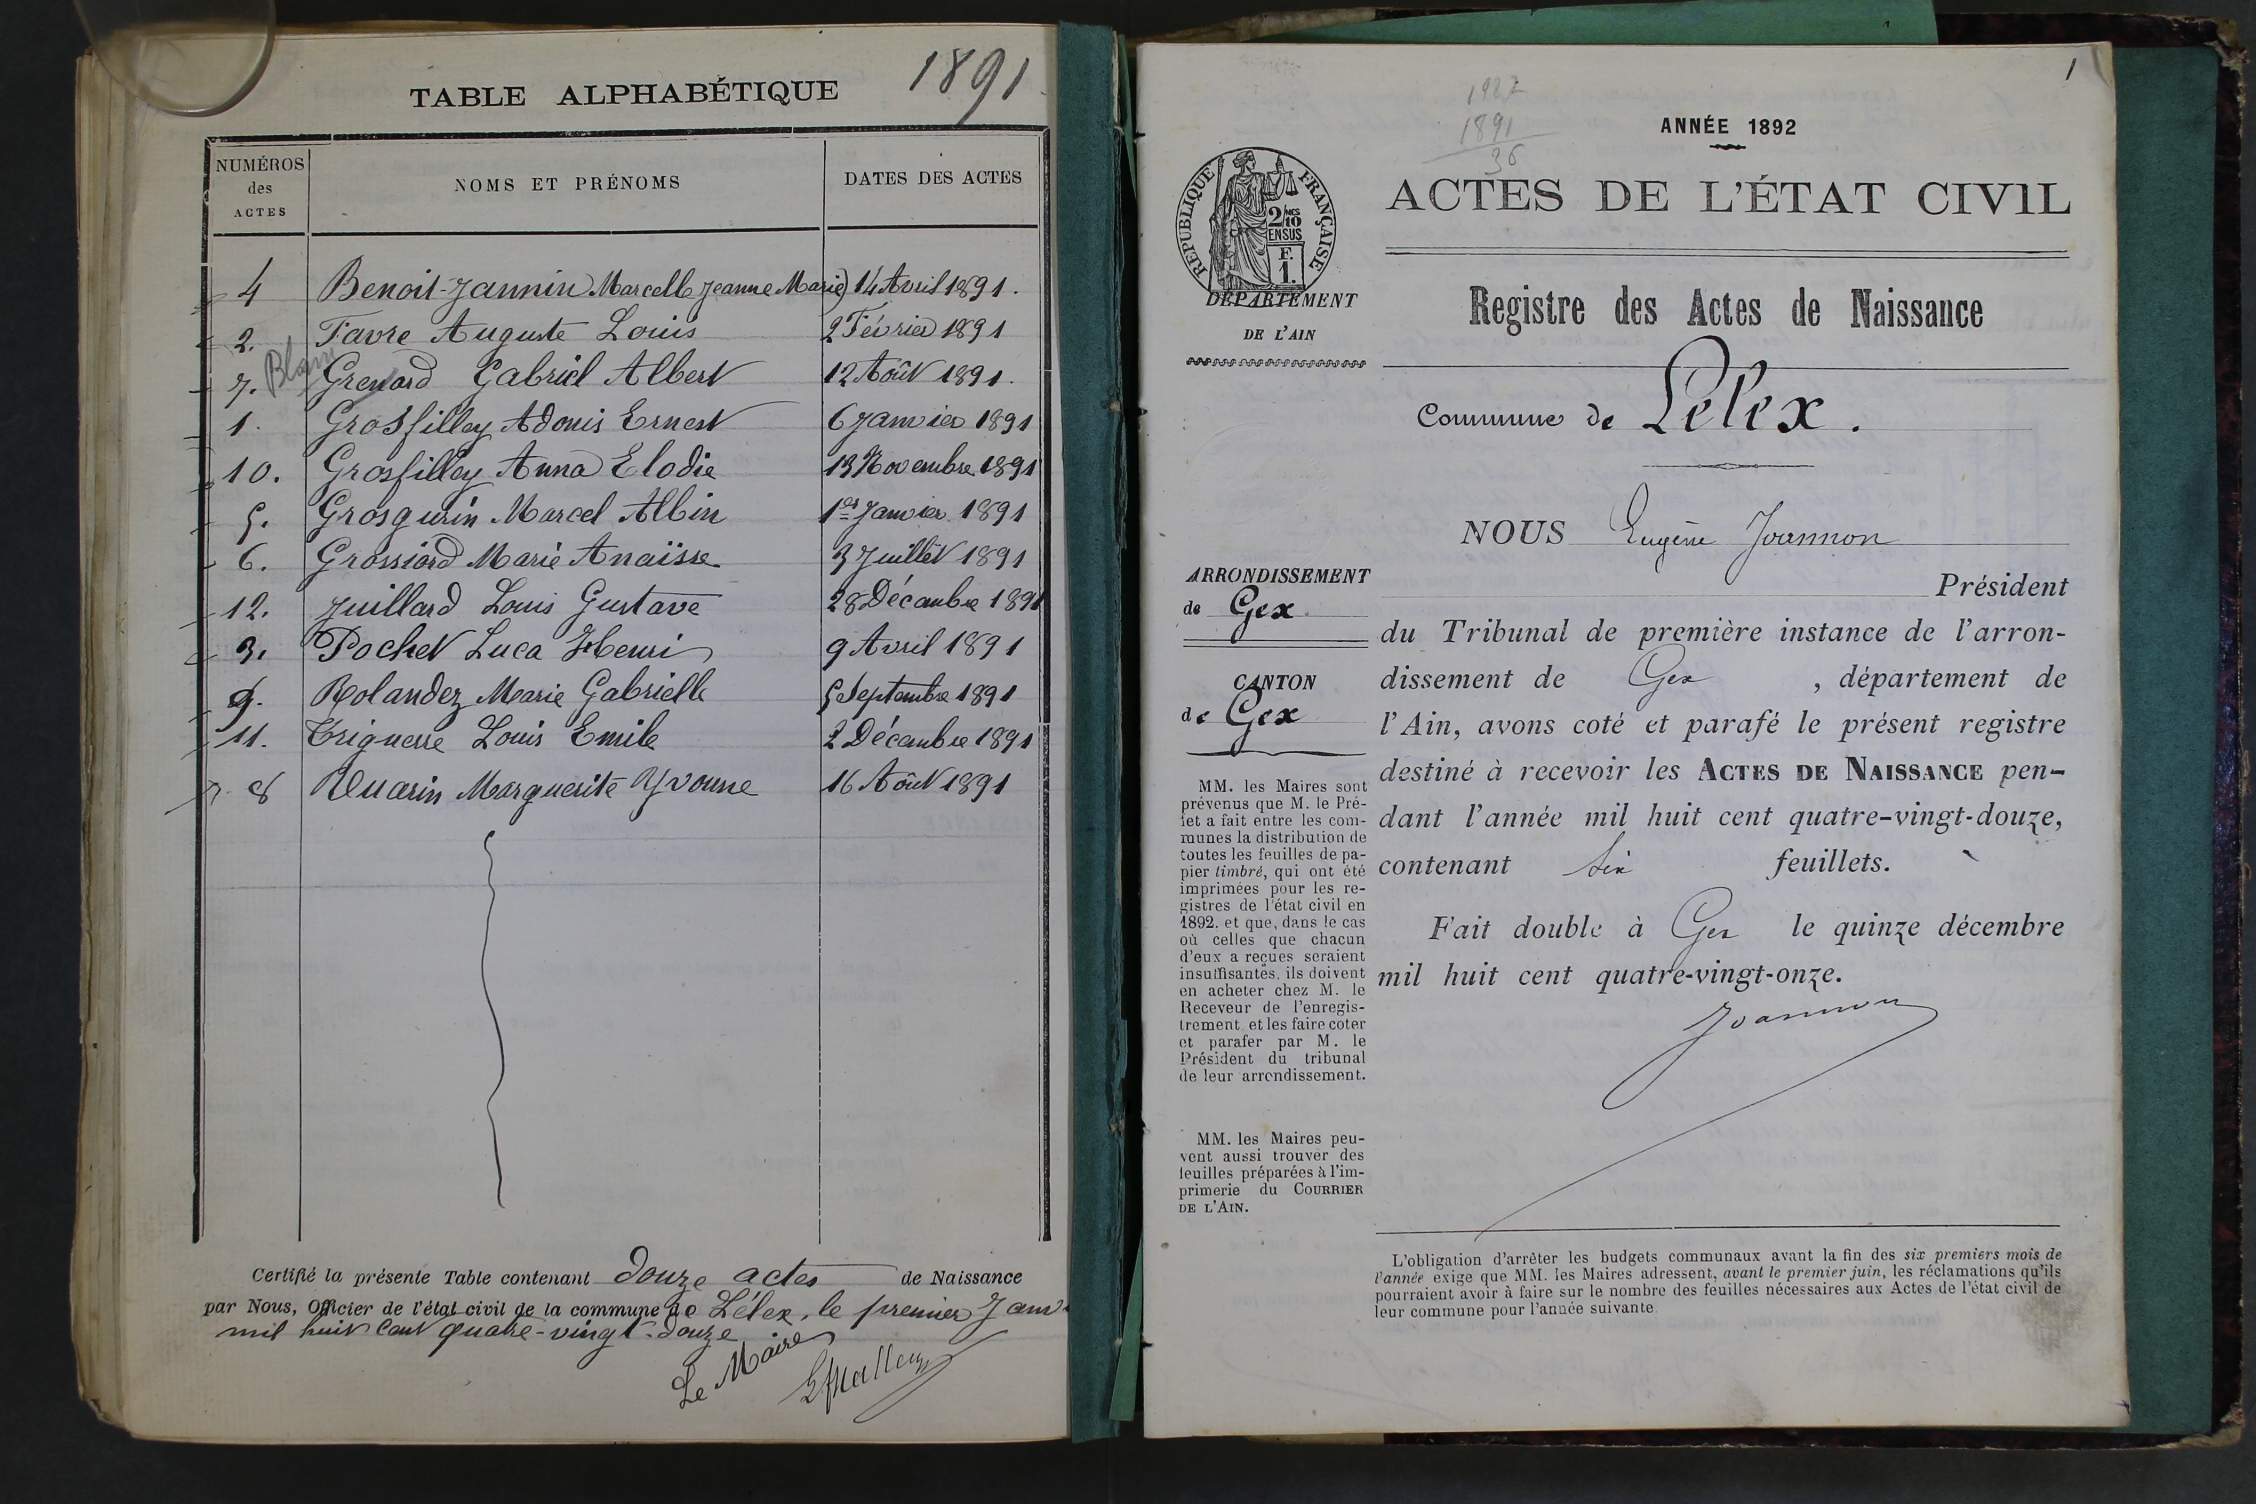 TABLE ALPHABÉTIQUE
1891
NUMÉROS des ACTES
NOMS ET PRÉNOMS
DATES DES ACTES
4 Benoit-Jannin Marcelle Jeanne Marie 14 Avril 1891.
2. Favre Auguste Louis 2 Février 1891
Blanc
7. Grenard Gabriel Albert 12 Août 1891.
1. Grosfilley Adonis Ernest 6 Janvier 1891
10. Grosfilley Anna Elodie 13 Novembre 1891
5. Grosgurin Marcel Albin 1er Janvier 1891
6. Grossiord Marie Anaïsse 3 Juillet 1891
12. Juillard Louis Gustave 28 Décembre 1891
3. Pochet Luca Henri 9 Avril 1891
9. Rolandez Marie Gabrielle 5 Septembre 1891
11. Louis Emile 2 Décembre 1891
8 Vuarin Marguerite Yvonne 16 Août 1891
Certifié la présente Table contenant douze actes de Naissance
par Nous, Officier de l'état civil de la commune de Lélex, le premier Janv
mil huit cent quatre-vingt-douze
Le Maire
1
1927
1891
36
ANNÉE 1892
ACTES DE L'ÉTAT CIVIL
RÉPUBLIQUE FRANÇAISE
2/10
EN SUS
F.
1.
DÉPARTEMENT
DE L'AIN
Registre des Actes de Naissance
Commune de Lélex.
ARRONDISSEMENT
de Gex
CANTON
de Gex
MM. les Maires sont
prévenus que M. le Pré-
fet a fait entre les com-
munes la distribution de
toutes les feuilles de pa-
pier timbré, qui ont été
imprimées pour les re-
gistres de l'état civil en
1892. et que, dans le cas
où celles que chacun
d'eux a reçues seraient
insuffisantes, ils doivent
en acheter chez M. le
Receveur de l'enregis-
trement et les faire coter
et parafer par M. le
Président du tribunal
de leur arrondissement.
MM. les Maires peu-
vent aussi trouver des
feuilles préparées à l'im-
primerie du COURRIER
DE L'AIN.
NOUS Eugène Joannon
Président
du Tribunal de première instance de l'arron-
dissement de Gex , département de
l'Ain, avons coté et parafé le présent registre
destiné à recevoir les ACTES DE NAISSANCE pen-
dant l'année mil huit cent quatre-vingt-douze,
contenant six feuillets.
Fait double à Gex le quinze décembre
mil huit cent quatre-vingt-onze.
Joannon
L'obligation d'arrêter les budgets communaux avant la fin des six premiers mois de
l'année exige que MM. les Maires adressent, avant le premier juin, les réclamations qu'ils
pourraient avoir à faire sur le nombre des feuilles nécessaires aux Actes de l'état civil de
leur commune pour l'année suivante